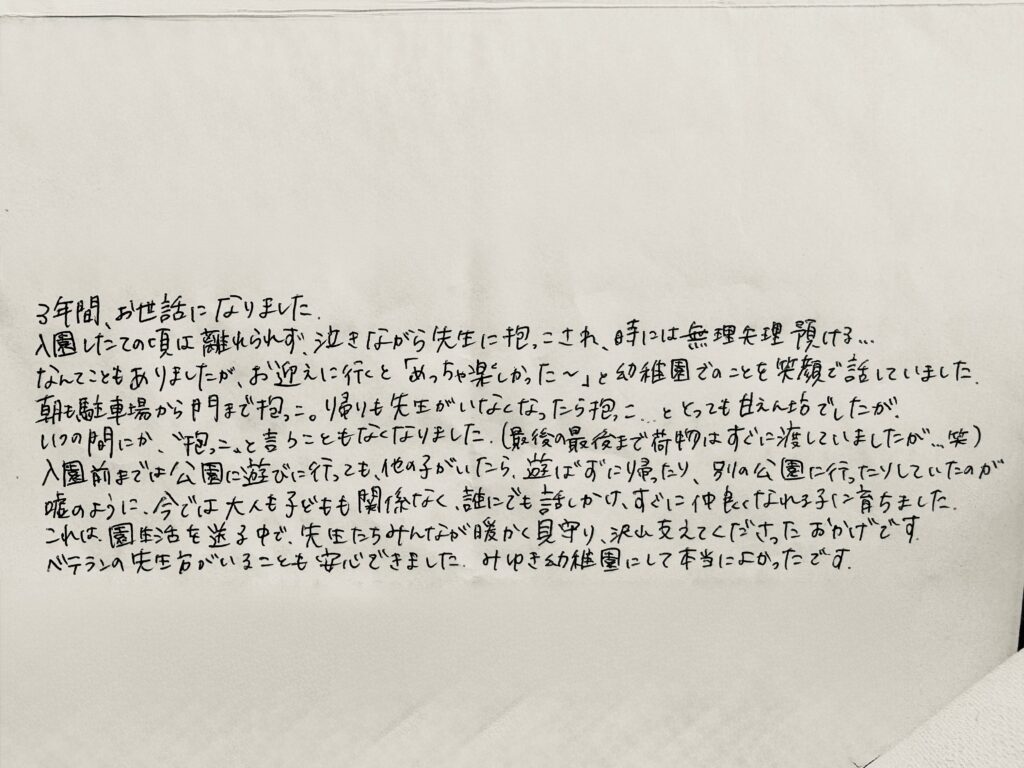 3年間、お世話になりました.
入園したての頃は離れられず、泣きながら先生に抱っこされ、時には無理矢理預ける…
なんてこともありましたが、お迎えに行くと「めっちゃ楽しかった〜」と幼稚園でのことを笑顔で話していました.
朝も駐車場から門まで抱っこ。帰りも先生がいなくなったら抱っこ…ととっても甘えん坊でしたが、
いつの間にか、〝抱っこ〟と言うこともなくなりました.(最後の最後まで荷物はすぐに渡していましたが…笑)
入園前までは公園に遊びに行っても、他の子がいたら、遊ばずに帰ったり、別の公園に行ったりしていたのが
嘘のように、今では大人も子どもも関係なく、誰にでも話しかけ、すぐに仲良くなれる子に育ちました.
これは、園生活を送る中で、先生たちみんなが暖かく見守り、沢山支えてくださったおかげです.
ベテランの先生方がいることも安心できました. みゆき幼稚園にして本当によかったです.